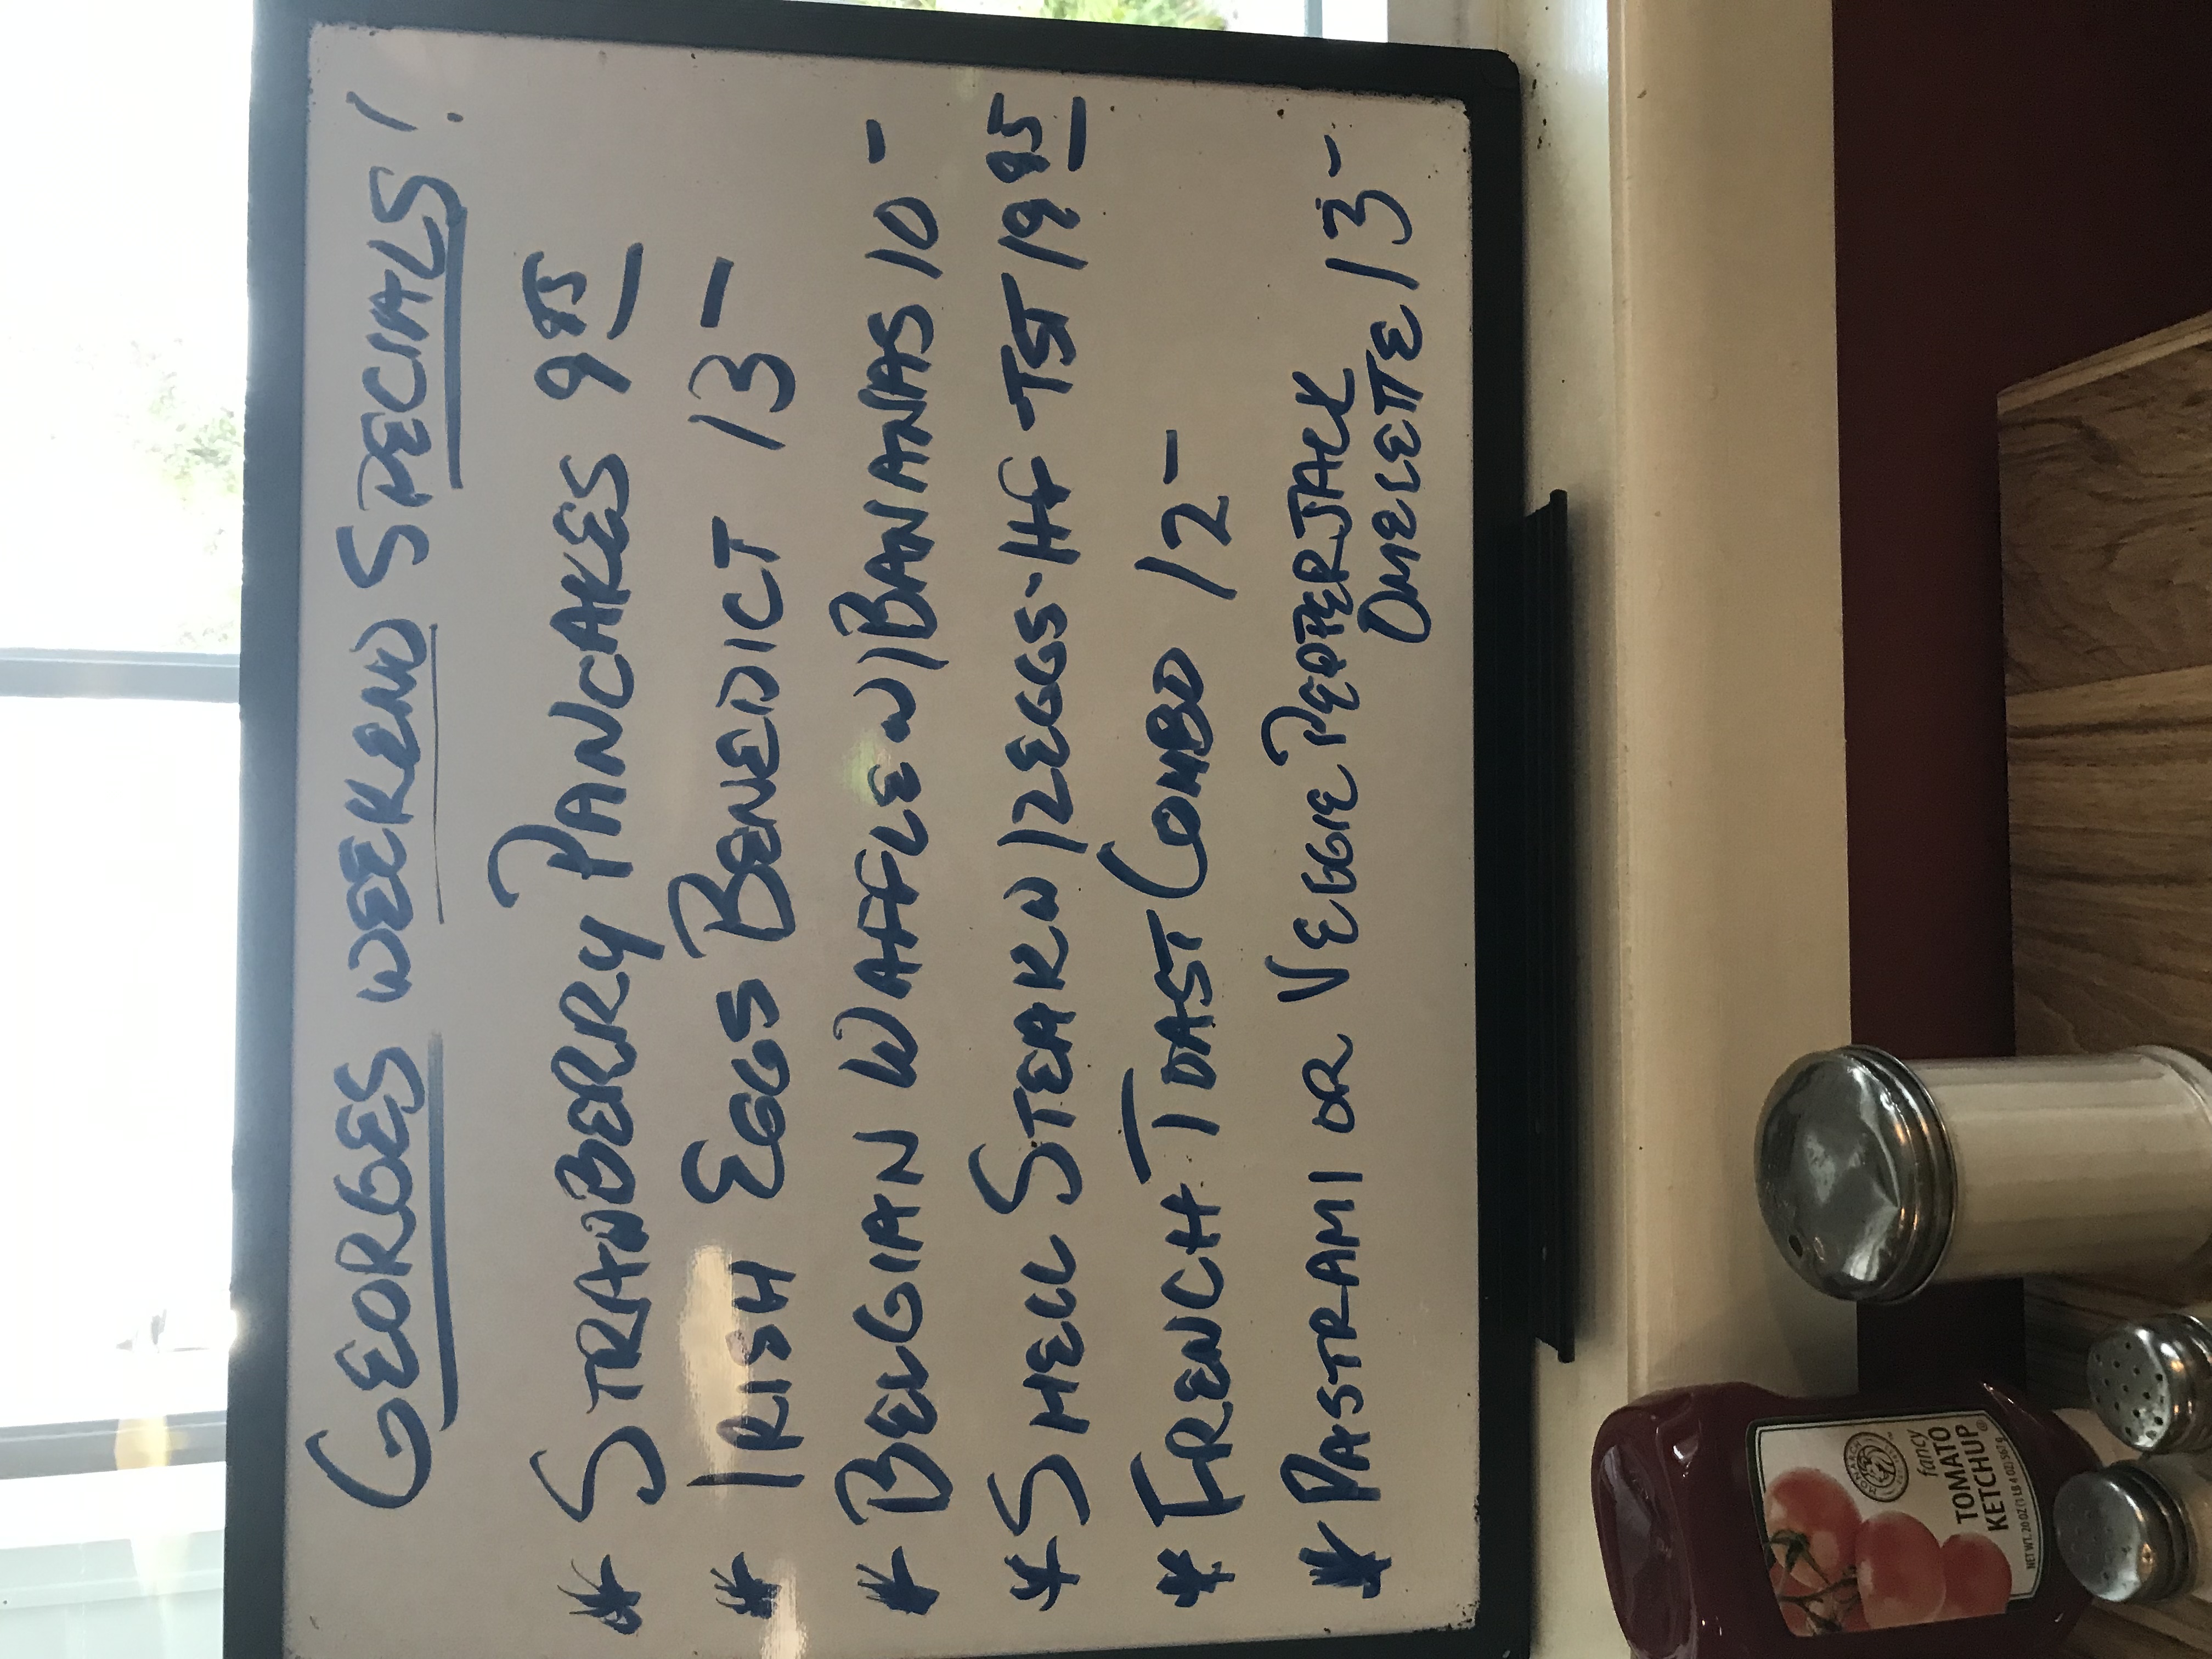 GEORGES WEEKEND SPECIALS!
* STRAWBERRY PANCAKES 9 95
* IRISH EGGS BENEDICT 13-
* BELGIAN WAFFLE W/BANANAS 10-
* SHELL STEAK W/2EGGS-HF-TST 19 95
* FRENCH TOAST COMBO 12-
* PASTRAMI OR VEGGIE PEPPERJACK
OMELETTE 13-
MONARCH
fancy
TOMATO
KETCHUP
NET WT. 20 OZ (1 LB 4 OZ) 567 g